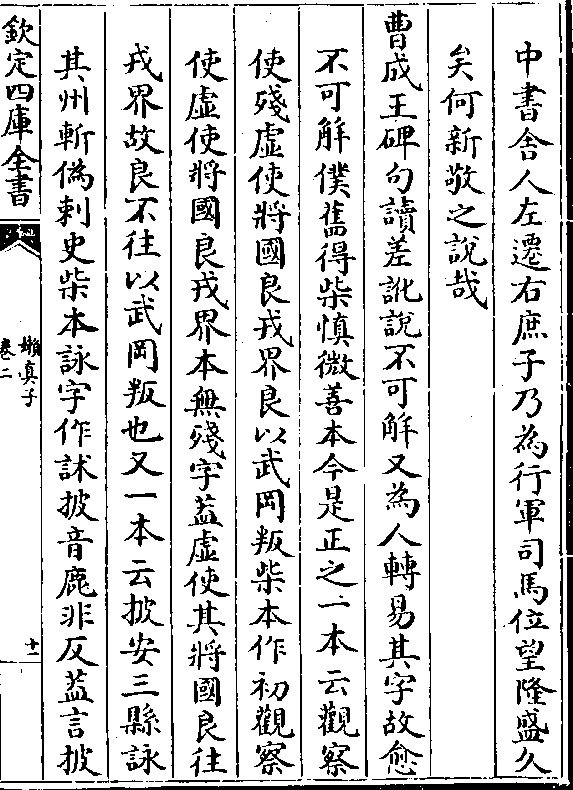 中書舍人左遷右庶子乃為行軍司馬位望隆盛久
矣何新敬之說哉
曹成王碑句讀差訛說不可解又為人轉易其字故愈
不可解僕舊得柴慎微善本今是正之一本云觀察
使殘虛使將國良戎界良以武岡叛柴本作初觀察
使虛使將國良戎界本無殘字葢虛使其將國良往
戎界故良不往以武岡叛也又一本云披安三縣詠
其州斬偽刺史柴本詠字作訹披音鹿非反葢言披
欽定四庫全書
嬾真子
卷二
十